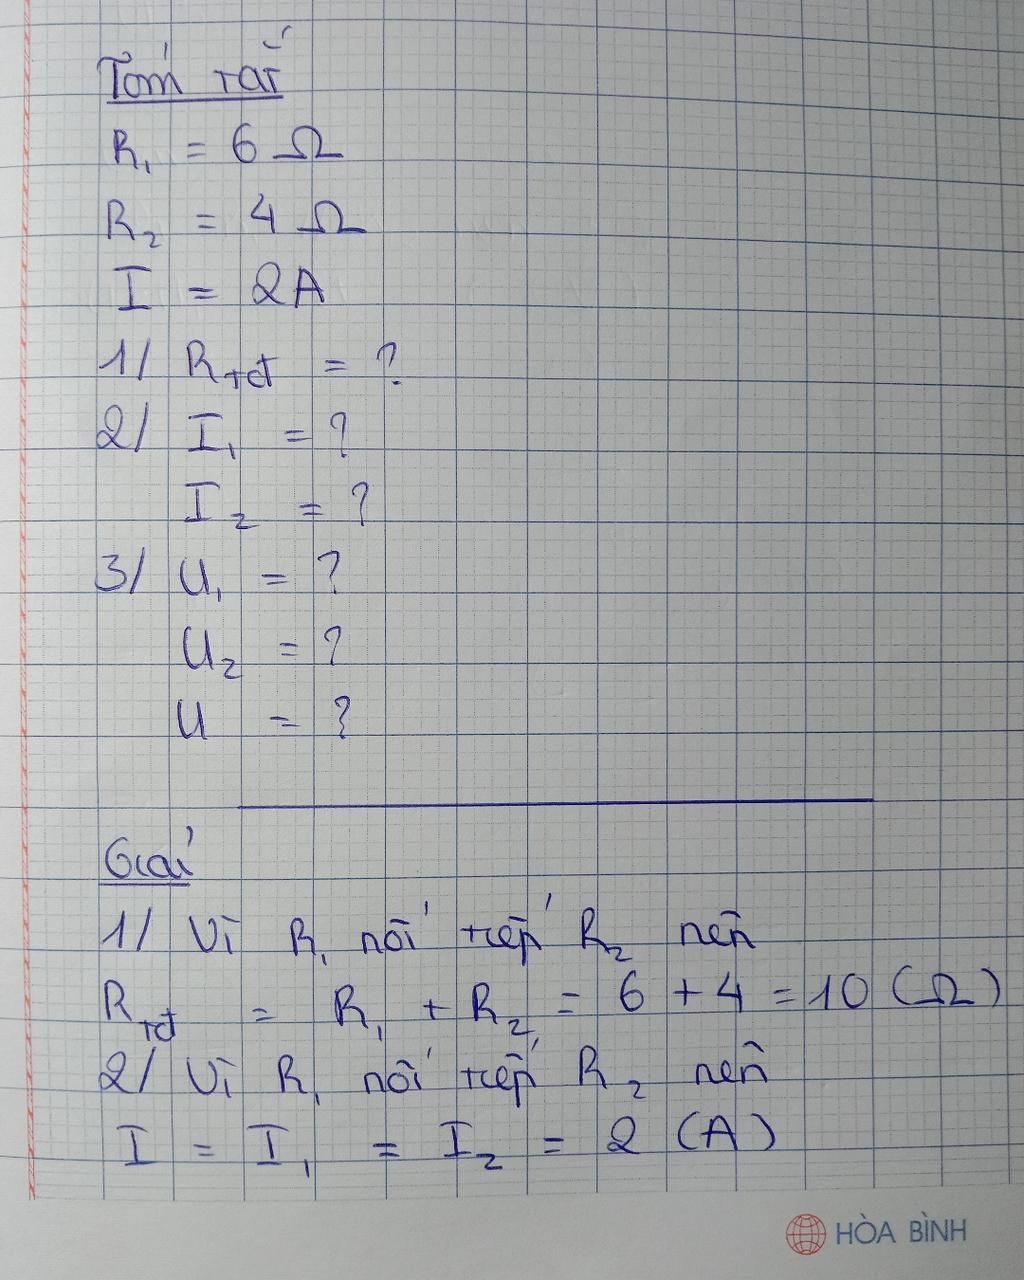 Tóm tắt
R₁ = 6 Ω
R₂ = 4 Ω
I = 2A
1/ Rtđ = ?
2/ I₁ = ?
I₂ = ?
3/ U₁ = ?
U₂ = ?
U = ?
Giải
1/ Vì R₁ nối tiếp R₂ nên
Rtđ = R₁ + R₂ = 6 + 4 = 10 (Ω)
2/ Vì R₁ nối tiếp R₂ nên
I = I₁ = I₂ = 2 (A)
HÒA BÌNH